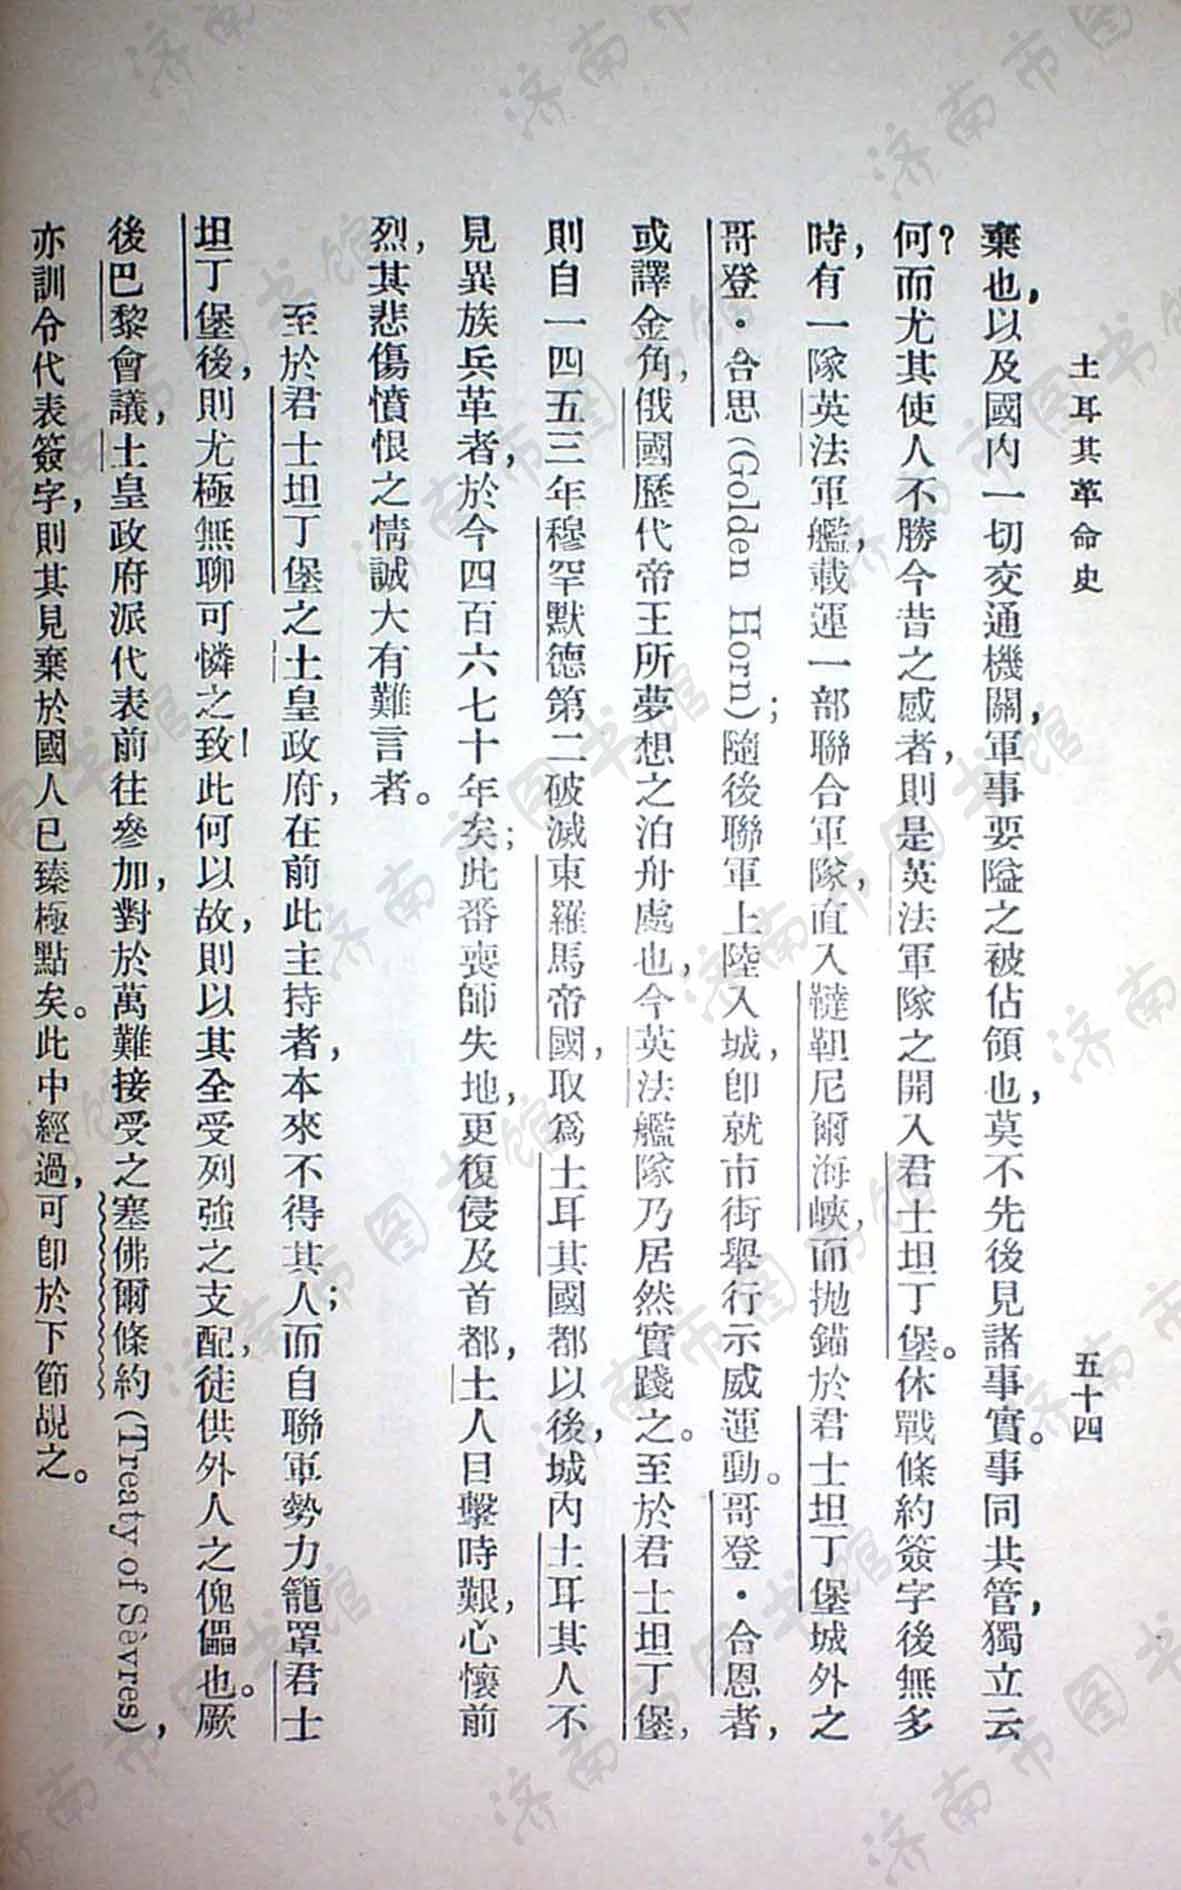 土耳其革命史
五十四
棄也，以及國內一切交通機關，軍事要隘之被佔領也，莫不先後見諸事實。事同共管，獨立云
何？而尤其使人不勝今昔之感者，則是英法軍隊之開入君士坦丁堡。休戰條約簽字後無多
時，有一隊英法軍艦，載運一部聯合軍隊，直入韃靼尼爾海峽，而拋錨於君士坦丁堡城外之
哥登・合思(Golden Horn)；隨後聯軍上陸入城，卽就市街舉行示威運動。哥登・合恩者，
或譯金角，俄國歷代帝王所夢想之泊舟處也，今英法艦隊乃居然實踐之。至於君士坦丁堡，
則自一四五三年穆罕默德第二破滅東羅馬帝國，取爲土耳其國都以後，城內土耳其人不
見異族兵革者，於今四百六七十年矣；此番喪師失地，更復侵及首都，土人目擊時艱，心懷前
烈，其悲傷憤恨之情誠大有難言者。
至於君士坦丁堡之土皇政府，在前此主持者，本來不得其人；而自聯軍勢力籠罩君士
坦丁堡後，則尤極無聊可憐之致！此何以故，則以其全受列強之支配，徒供外人之傀儡也。厥
後巴黎會議，土皇政府派代表前往參加，對於萬難接受之塞佛爾條約(Treaty of Sèvres)，
亦訓令代表簽字，則其見棄於國人已臻極點矣。此中經過，可卽於下節覘之。
济南市图书馆